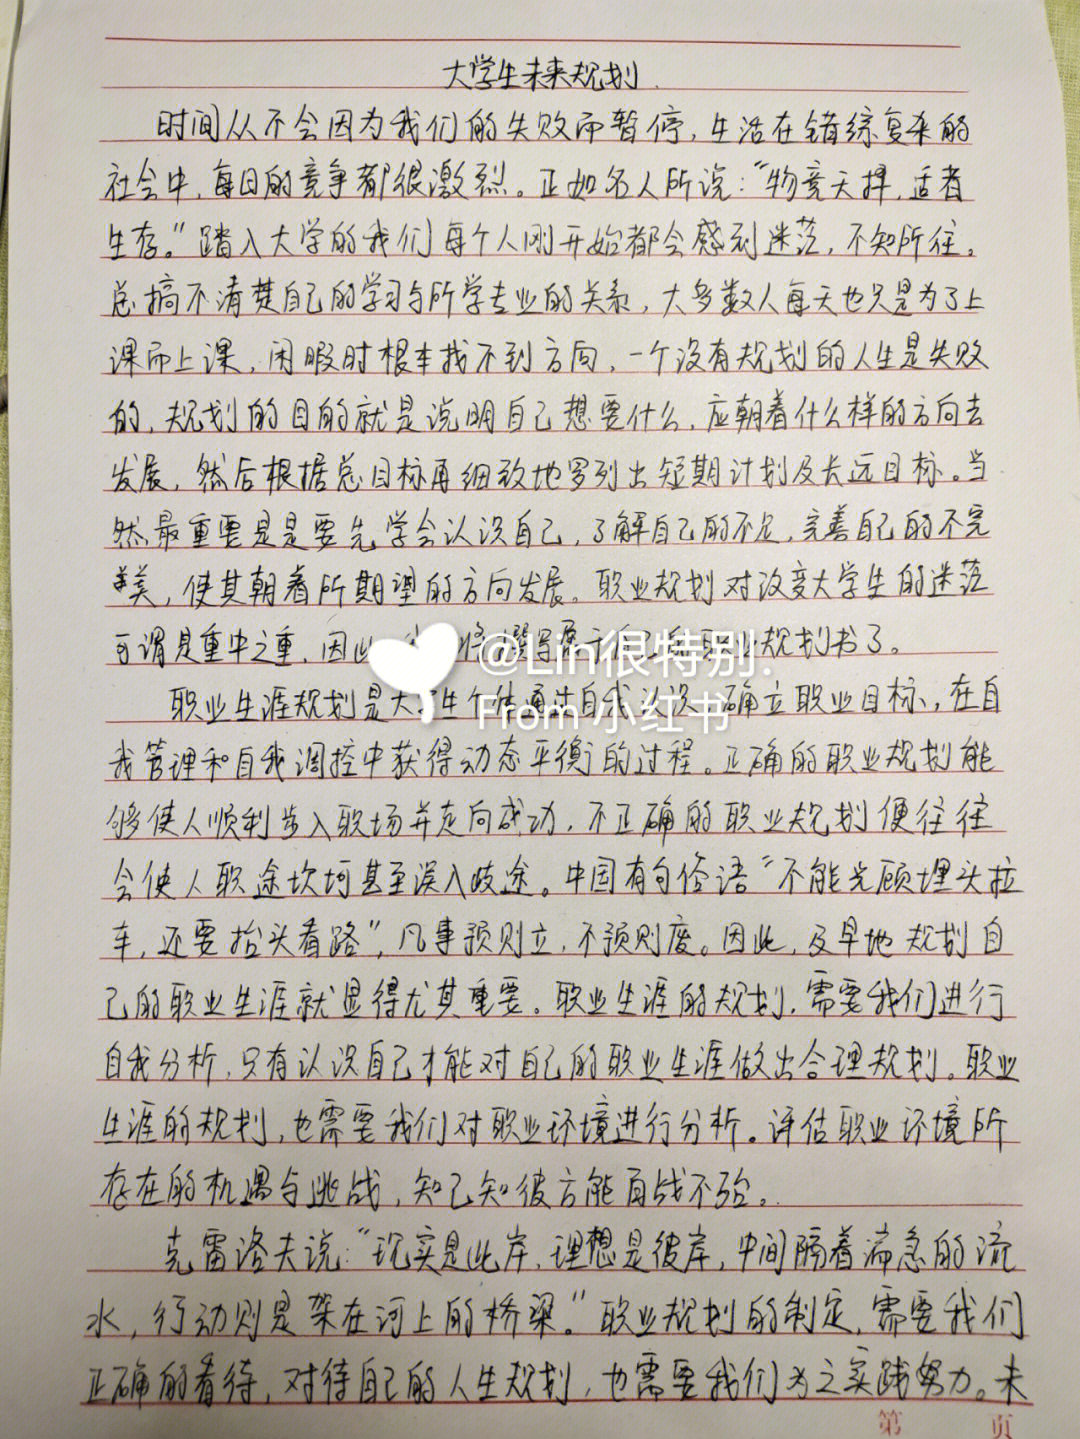 大学生未来规划
时间从不会因为我们的失败而暂停，生活在错综复杂的
社会中，每日的竞争都很激烈。正如名人所说："物竞天择，适者
生存。"踏入大学的我们每个人刚开始都会感到迷茫，不知所往。
总搞不清楚自己的学习与所学专业的关系，大多数人每天也只是为了上
课而上课，闲暇时根本找不到方向，一个没有规划的人生是失败
的，规划的目的就是说明自己想要什么，应朝着什么样的方向去
发展，然后根据总目标再细致地罗列出短期计划及长远目标。当
然最重要是是要先学会认识自己，了解自己的不足，完善自己的不完
美，使其朝着所期望的方向发展。职业规划对改变大学生的迷茫
可谓是重中之重，因此 职业规划书了。
@Lin很特别.
From 小红书
职业生涯规划是大 生个体通过自我认识 确立职业目标，在自
我管理和自我调控中获得动态平衡的过程。正确的职业规划能
够使人顺利步入职场并走向成功，不正确的职业规划便往往
会使人职途坎坷甚至误入歧途。中国有句俗语"不能光顾埋头拉
车，还要抬头看路"，凡事预则立，不预则废。因此，及早地规划自
己的职业生涯就显得尤其重要。职业生涯的规划，需要我们进行
自我分析，只有认识自己才能对自己的职业生涯做出合理规划。职业
生涯的规划，也需要我们对职业环境进行分析。评估职业环境所
存在的机遇与挑战，知己知彼方能百战不殆。
克雷洛夫说："现实是此岸，理想是彼岸，中间隔着湍急的流
水，行动则是架在河上的桥梁。"职业规划的制定，需要我们
正确的看待，对待自己的人生规划，也需要我们为之实践努力。未
第 页